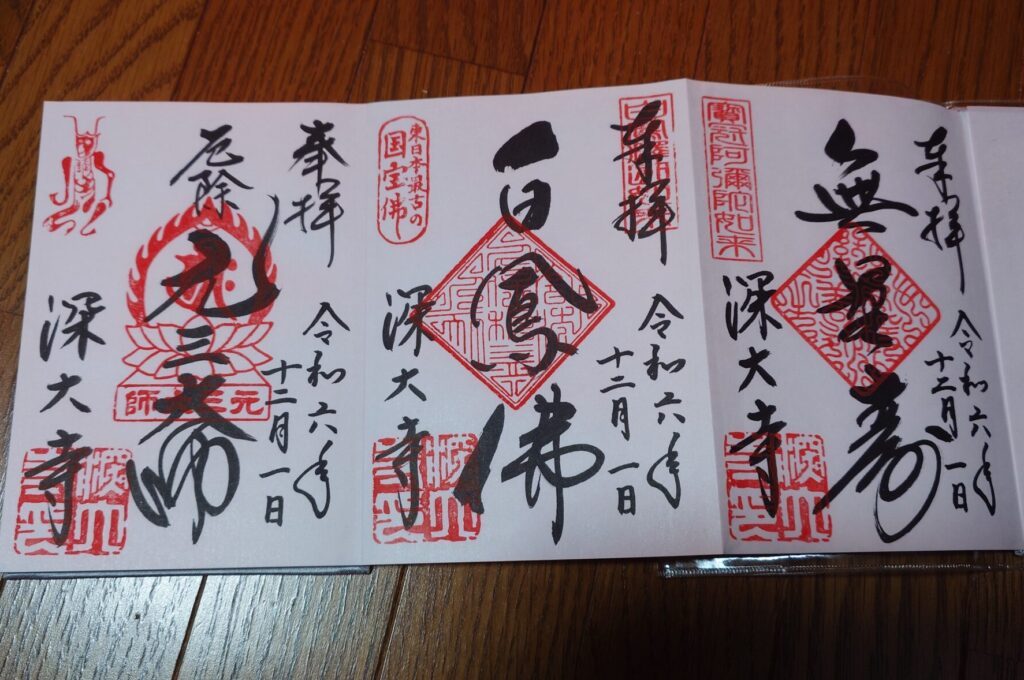 奉拝
令和六年
十二月一日
無量壽
寶冠阿彌陀如来
深大寺
奉拝
令和六年
十二月一日
白鳳佛
東日本最古の
国宝佛
深大寺
奉拝
令和六年
十二月一日
厄除
元三大師
元三大師
深大寺